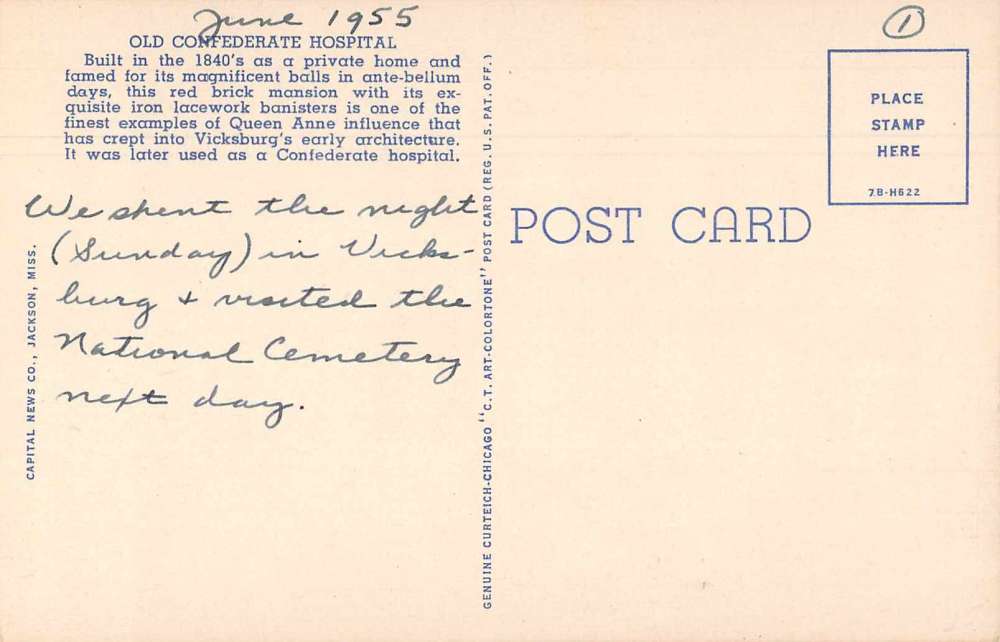 June 1955
①
OLD CONFEDERATE HOSPITAL
Built in the 1840's as a private home and
famed for its magnificent balls in ante-bellum
days, this red brick mansion with its ex-
quisite iron lacework banisters is one of the
finest examples of Queen Anne influence that
has crept into Vicksburg's early architecture.
It was later used as a Confederate hospital.
We spent the night
(Sunday) in Vicks-
burg + visited the
National Cemetery
next day.
CAPITAL NEWS CO., JACKSON, MISS.
GENUINE CURTEICH-CHICAGO "C.T. ART-COLORTONE" POST CARD (REG. U.S. PAT. OFF.)
POST CARD
PLACE
STAMP
HERE
7B-H622